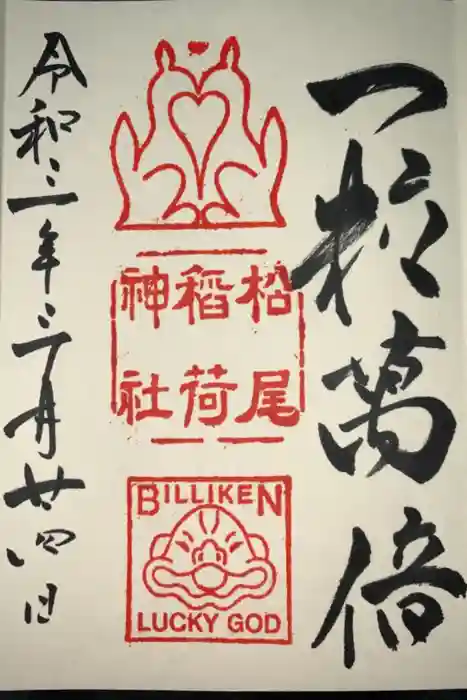 一粒萬倍
松尾
稲荷
神社
BILLIKEN
LUCKY GOD
令和三年三月廿四日